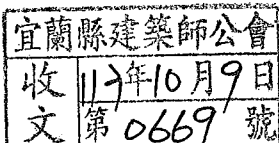 宜蘭縣建築師公會
收 117年10月9日
文 第 0669 號